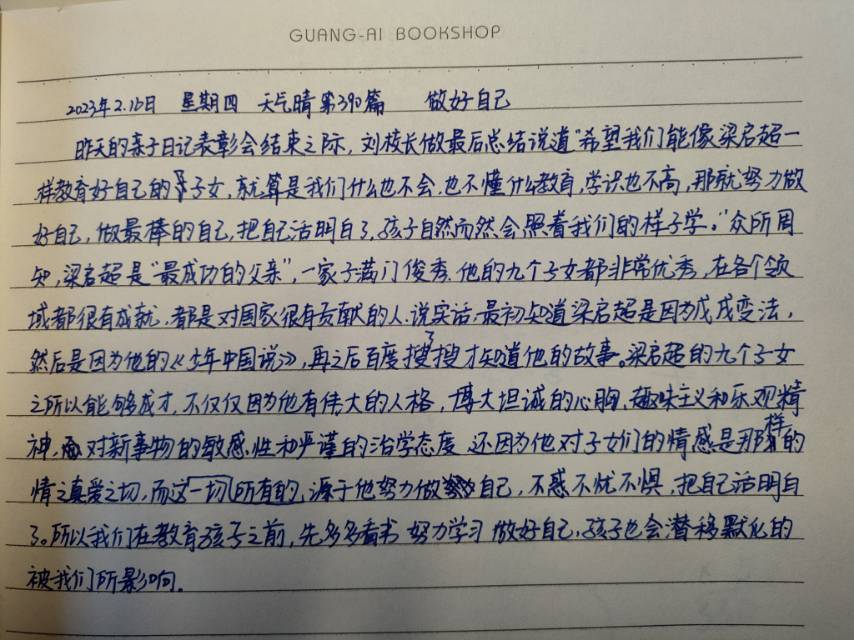 GUANG-AI BOOKSHOP
2023年2.16日 星期四 天气晴 第390篇 做好自己
昨天的亲子日记表彰会结束之际,刘校长做最后总结说道"希望我们能像梁启超一
样教育好自己的子女,就算是我们什么也不会,也不懂什么教育,学识也不高,那就努力做
好自己,做最棒的自己,把自己活明白了,孩子自然而然会照着我们的样子学。"众所周
知,梁启超是"最成功的父亲",一家子满门俊秀.他的九个子女都非常优秀,在各个领
域都很有成就,都是对国家很有贡献的人.说实话,最初知道梁启超是因为戊戌变法,
然后是因为他的《少年中国说》,再之后百度搜了搜才知道他的故事。梁启超的九个子女
之所以能够成才,不仅仅因为他有伟大的人格,博大坦诚的心胸,趣味主义和乐观精
神,对新事物的敏感性和严谨的治学态度,还因为他对子女们的情感是那样的
情之真爱之切,而这一切所有的,源于他努力做自己,不惑不忧不惧,把自己活明白
了。所以我们在教育孩子之前,先多多看书 努力学习 做好自己,孩子也会潜移默化的
被我们所影响.